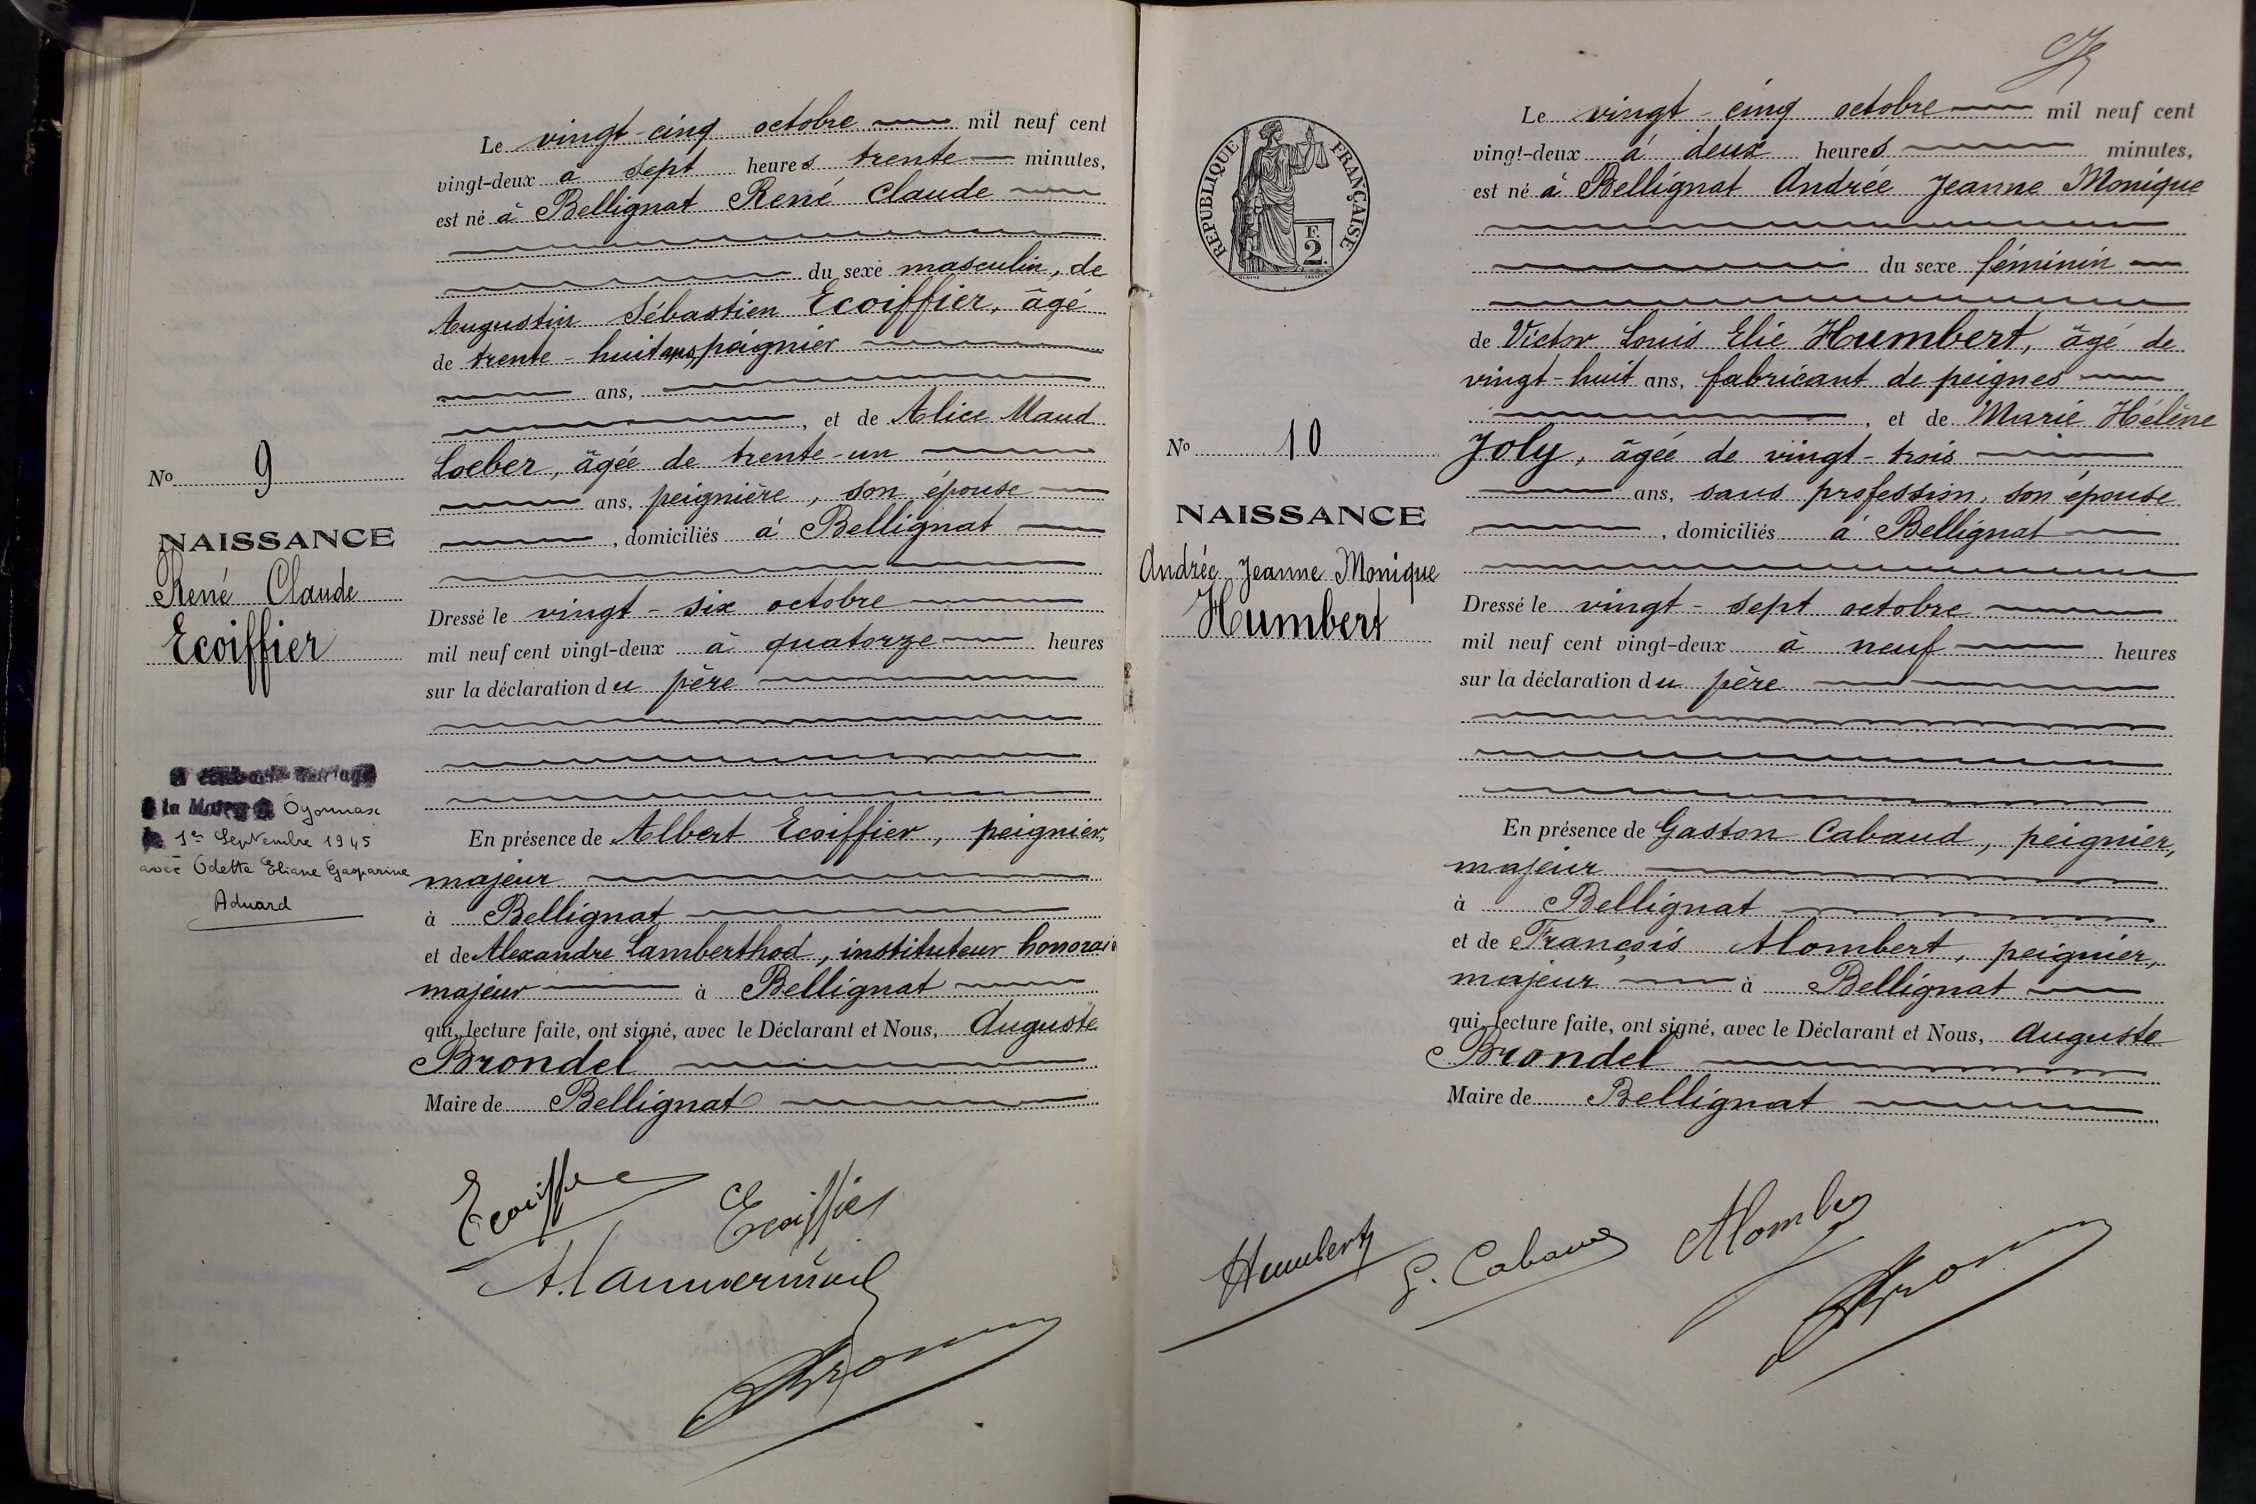 Le vingt-cinq octobre mil neuf cent
vingt-deux à sept heures trente minutes,
est né à Bellignat René Claude
du sexe masculin, de
Augustin Sébastien Ecoiffier, âgé
de trente-huit ans, peignier
ans,
, et de Alice Maud
Loeber, âgée de trente-un
ans, peignière, son épouse
, domiciliés à Bellignat
Dressé le vingt-six octobre
mil neuf cent vingt-deux à quatorze heures
sur la déclaration du père
En présence de Albert Ecoiffier, peignier,
majeur
à Bellignat
et de Alexandre Lamberthod, instituteur honorai
majeur à Bellignat
qui, lecture faite, ont signé, avec le Déclarant et Nous, Auguste
Brondel
Maire de Bellignat
No 9
NAISSANCE
René Claude
Ecoiffier
mariage
à la Oyonnax
le 1er Septembre 1945
avec Odette Eliane Gasparine
Aduard
Ecoiffier
Ecoiffier
RÉPUBLIQUE FRANÇAISE
F.
2.
No 10
NAISSANCE
Andrée Jeanne Monique
Humbert
Le vingt-cinq octobre mil neuf cent
vingt-deux à deux heures minutes,
est né à Bellignat Andrée Jeanne Monique
du sexe féminin
de Victor Louis Elie Humbert, âgé de
vingt-huit ans, fabricant de peignes
, et de Marie Hélène
Joly, âgée de vingt-trois
ans, sans profession, son épouse
, domiciliés à Bellignat
Dressé le vingt-sept octobre
mil neuf cent vingt-deux à neuf heures
sur la déclaration du père
En présence de Gaston Cabaud, peignier,
majeur
à Bellignat
et de François Alombert, peignier,
majeur à Bellignat
qui, lecture faite, ont signé, avec le Déclarant et Nous, Auguste
Brondel
Maire de Bellignat
Humbert
G. Cabaud